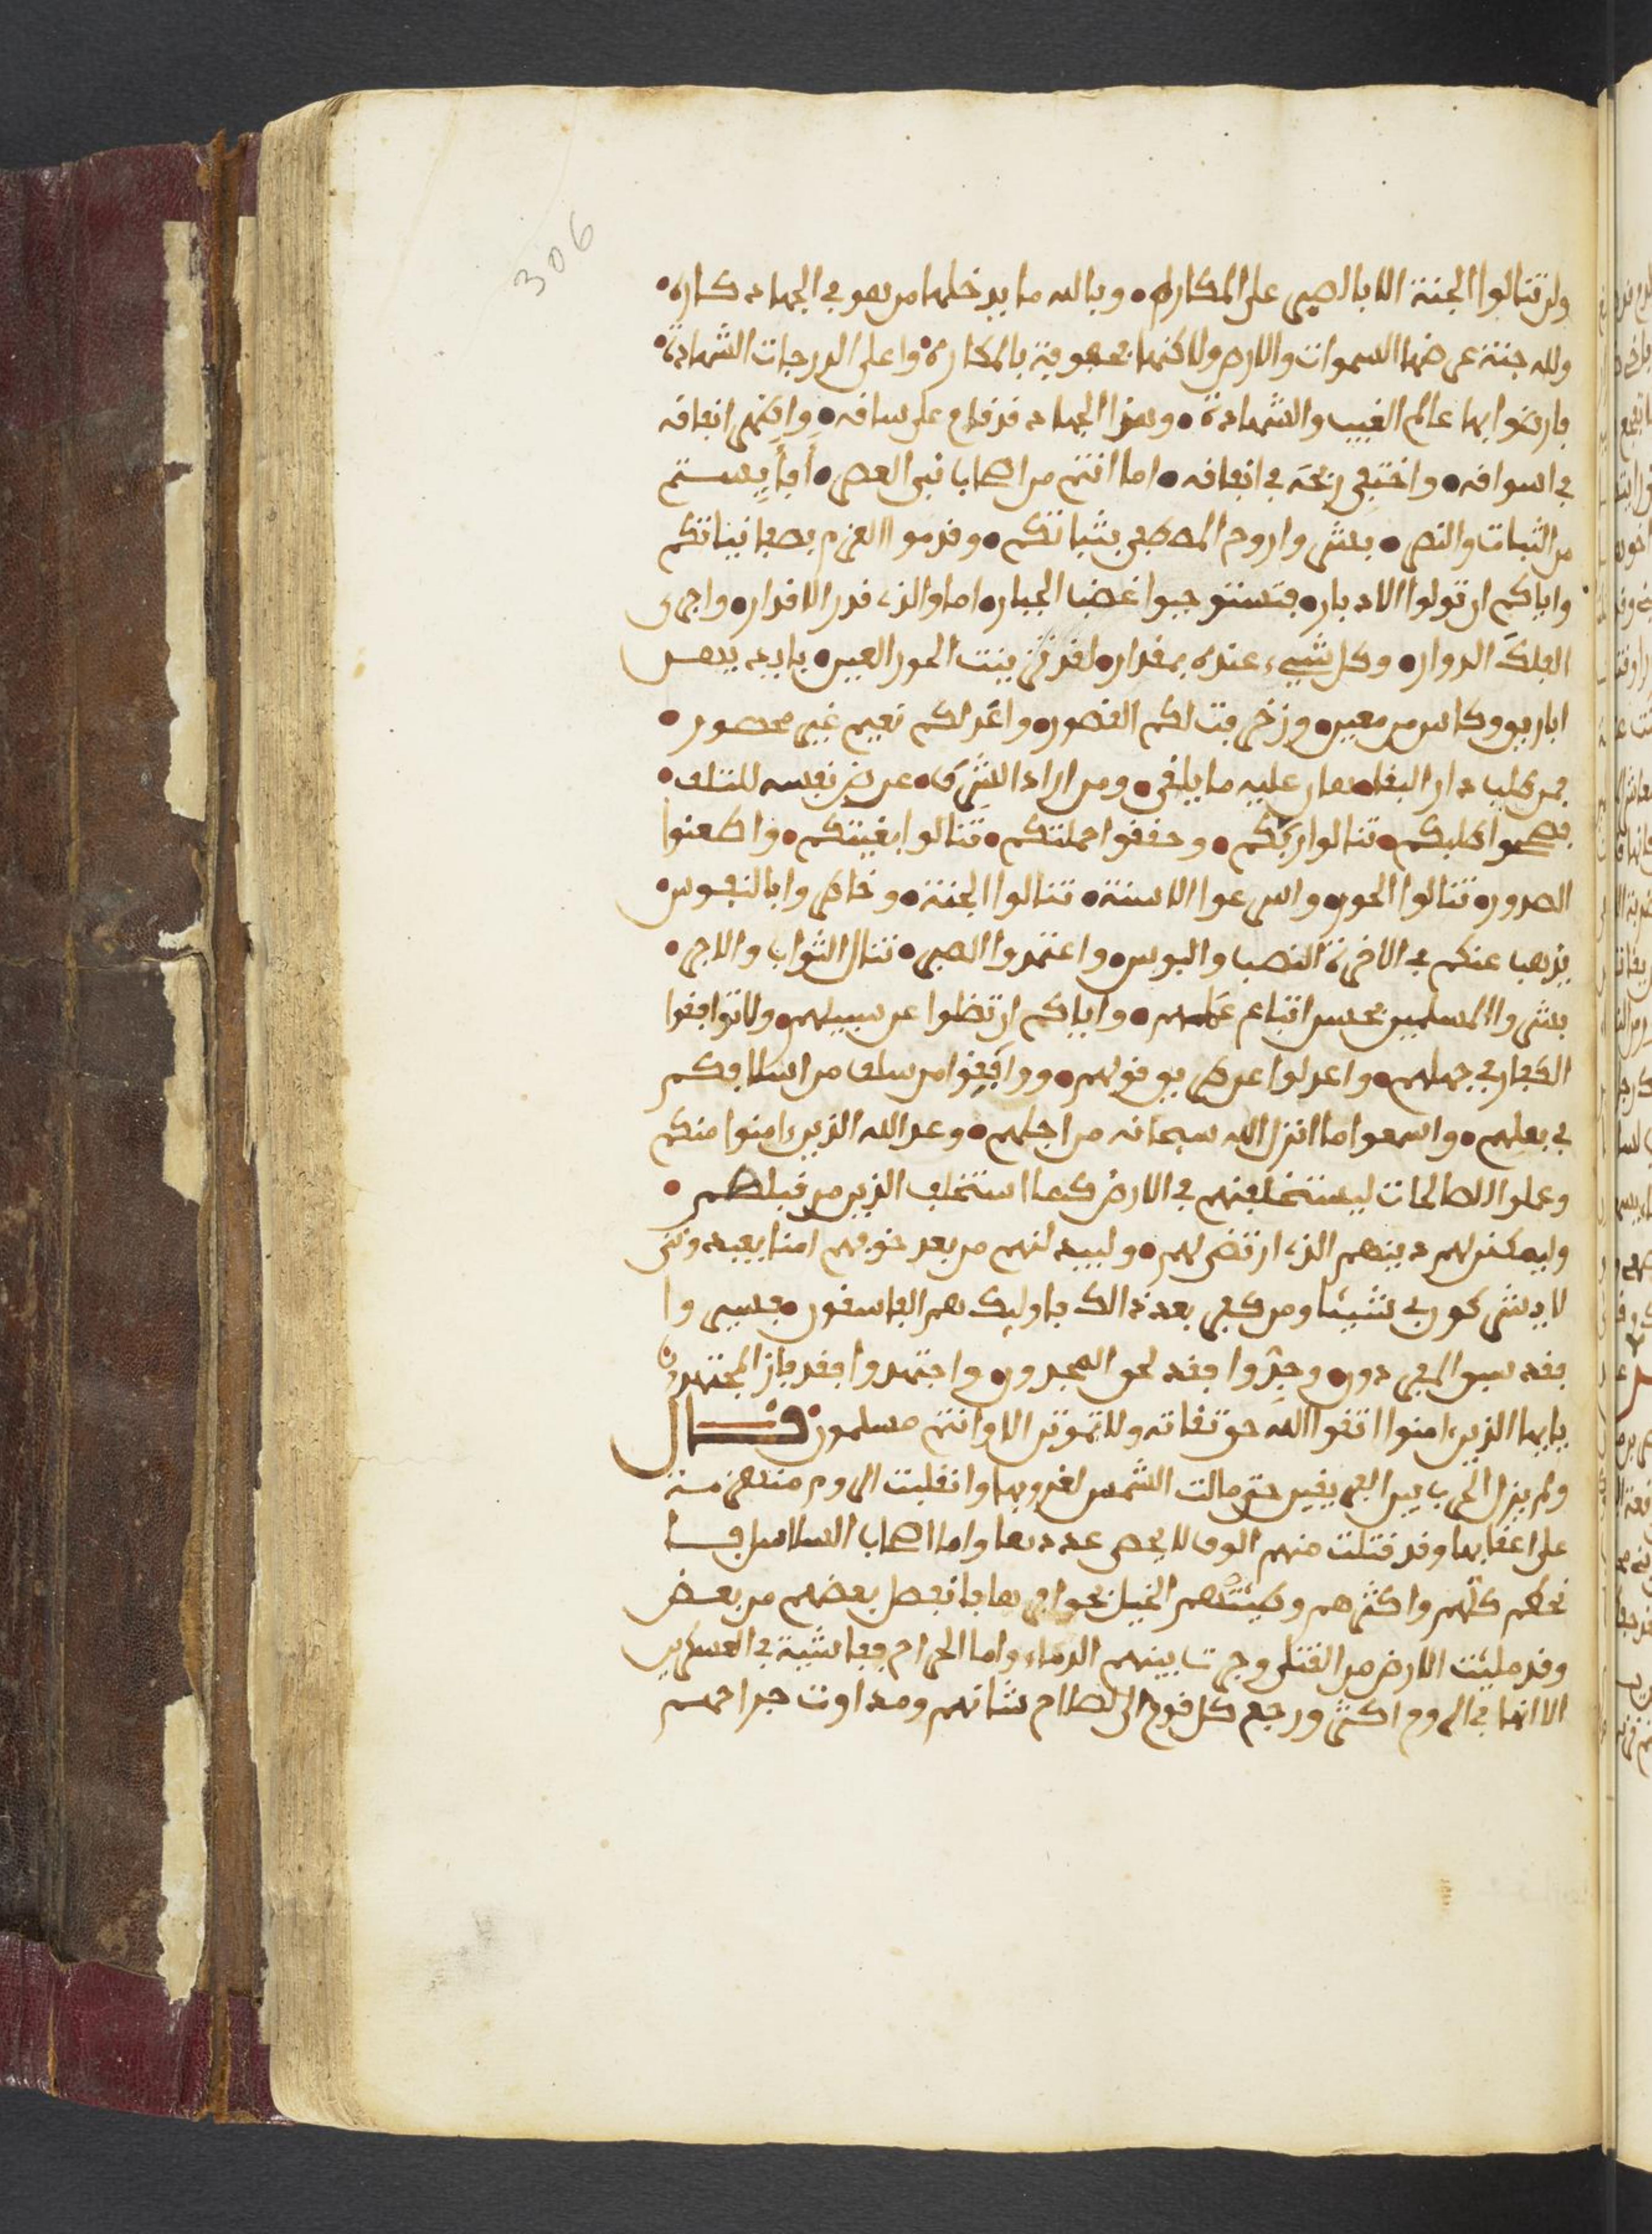 306
ولن تنالوا الجنة الا بالصبر على المكاره • وبالله ما يدخلها من هو في الجهاد كاره •
ولله جنة عرضها السموات والارض ولاكنها محفوفة بالمكاره • واعلى الدرجات الشهادة •
فارغبوا عالم الغيب والشهادة • وهذا الجهاد قد قام على ساقه • انفاقه
في اسواقه • في انفاقه • اما انتم من اصحاب نبي العصر •
من الثبات والنصر • بشروا روح المصطفى بثباتكم • وقدموا العزم بصفا نياتكم
واياكم ان تولوا الادبار • فتستوجبوا غضب الجبار • اما والذي قدر الاقدار • واجرى
الفلك الدوار • وكل شيء عنده بمقدار • لقد تزينت الحور العين • بايديهن
اباريق وكاس من معين • وزخرفت لكم القصور • واعد لكم نعيم غير محصور •
فمن طلب دار البقا • هان عليه ما يلقى • ومن اراد الشرف • عرض نفسه للتلف •
طلبكم • تنالوا ربكم • وحققوا حملتكم • تنالوا بغيتكم • واطعنوا
الصدور • تنالوا الحور • واسرعوا الاسنة • تنالوا الجنة • وخاطروا بالنفوس •
يذهب عنكم في الاخرة النصب والبوس • واعتمدوا الصبر • تنال الثواب والاجر •
بشروا المسلمين بحسن اتباع عملهم • واياكم ان تضلوا عن سبيلهم • ولا توافقوا
الكفار في جهلهم • واعدلوا عن طريق قولهم • ووافقوا من سلف من اسلافكم
في فعلهم • واسمعوا ما انزل الله سبحانه من اجلهم • وعد الله الذين ءامنوا منكم
وعملوا الصالحات ليستخلفنهم في الارض كما استخلف الذين من قبلهم •
وليمكنن لهم دينهم الذي ارتضى لهم • وليبدلنهم من بعد خوفهم امنا يعبدونني
لا يشركون بي شيئا ومن كفر بعد ذالك فاوليك هم الفاسقون • فسيروا
فقد سبق المفردون • وجدوا فقد لحق المجدون • واجتهدوا فقد فاز المجتهدون
يايها الذين ءامنوا اتقوا الله حق تقاته ولا تموتن الا وانتم مسلمون قال
ولم يزل الحرب بين الفريقين حتى مالت الشمس لغروبها وانقلبت الروم منهزمة
على اعقابها وقد قتلت منهم الوف لا يحصى عددها واما اصحاب السلاسل فما
نحكم كلهم واكثرهم وطيتهم الخيل بحوافرها فانفصل بعضهم من بعض
وقد مليت الارض من القتلى وجرت بينهم الدماء واما الجراح ففاشية في العسكرين
الا انها في الروم اكثر ورجع كل قوم الى اصلاح شانهم ومداوت جراحهم